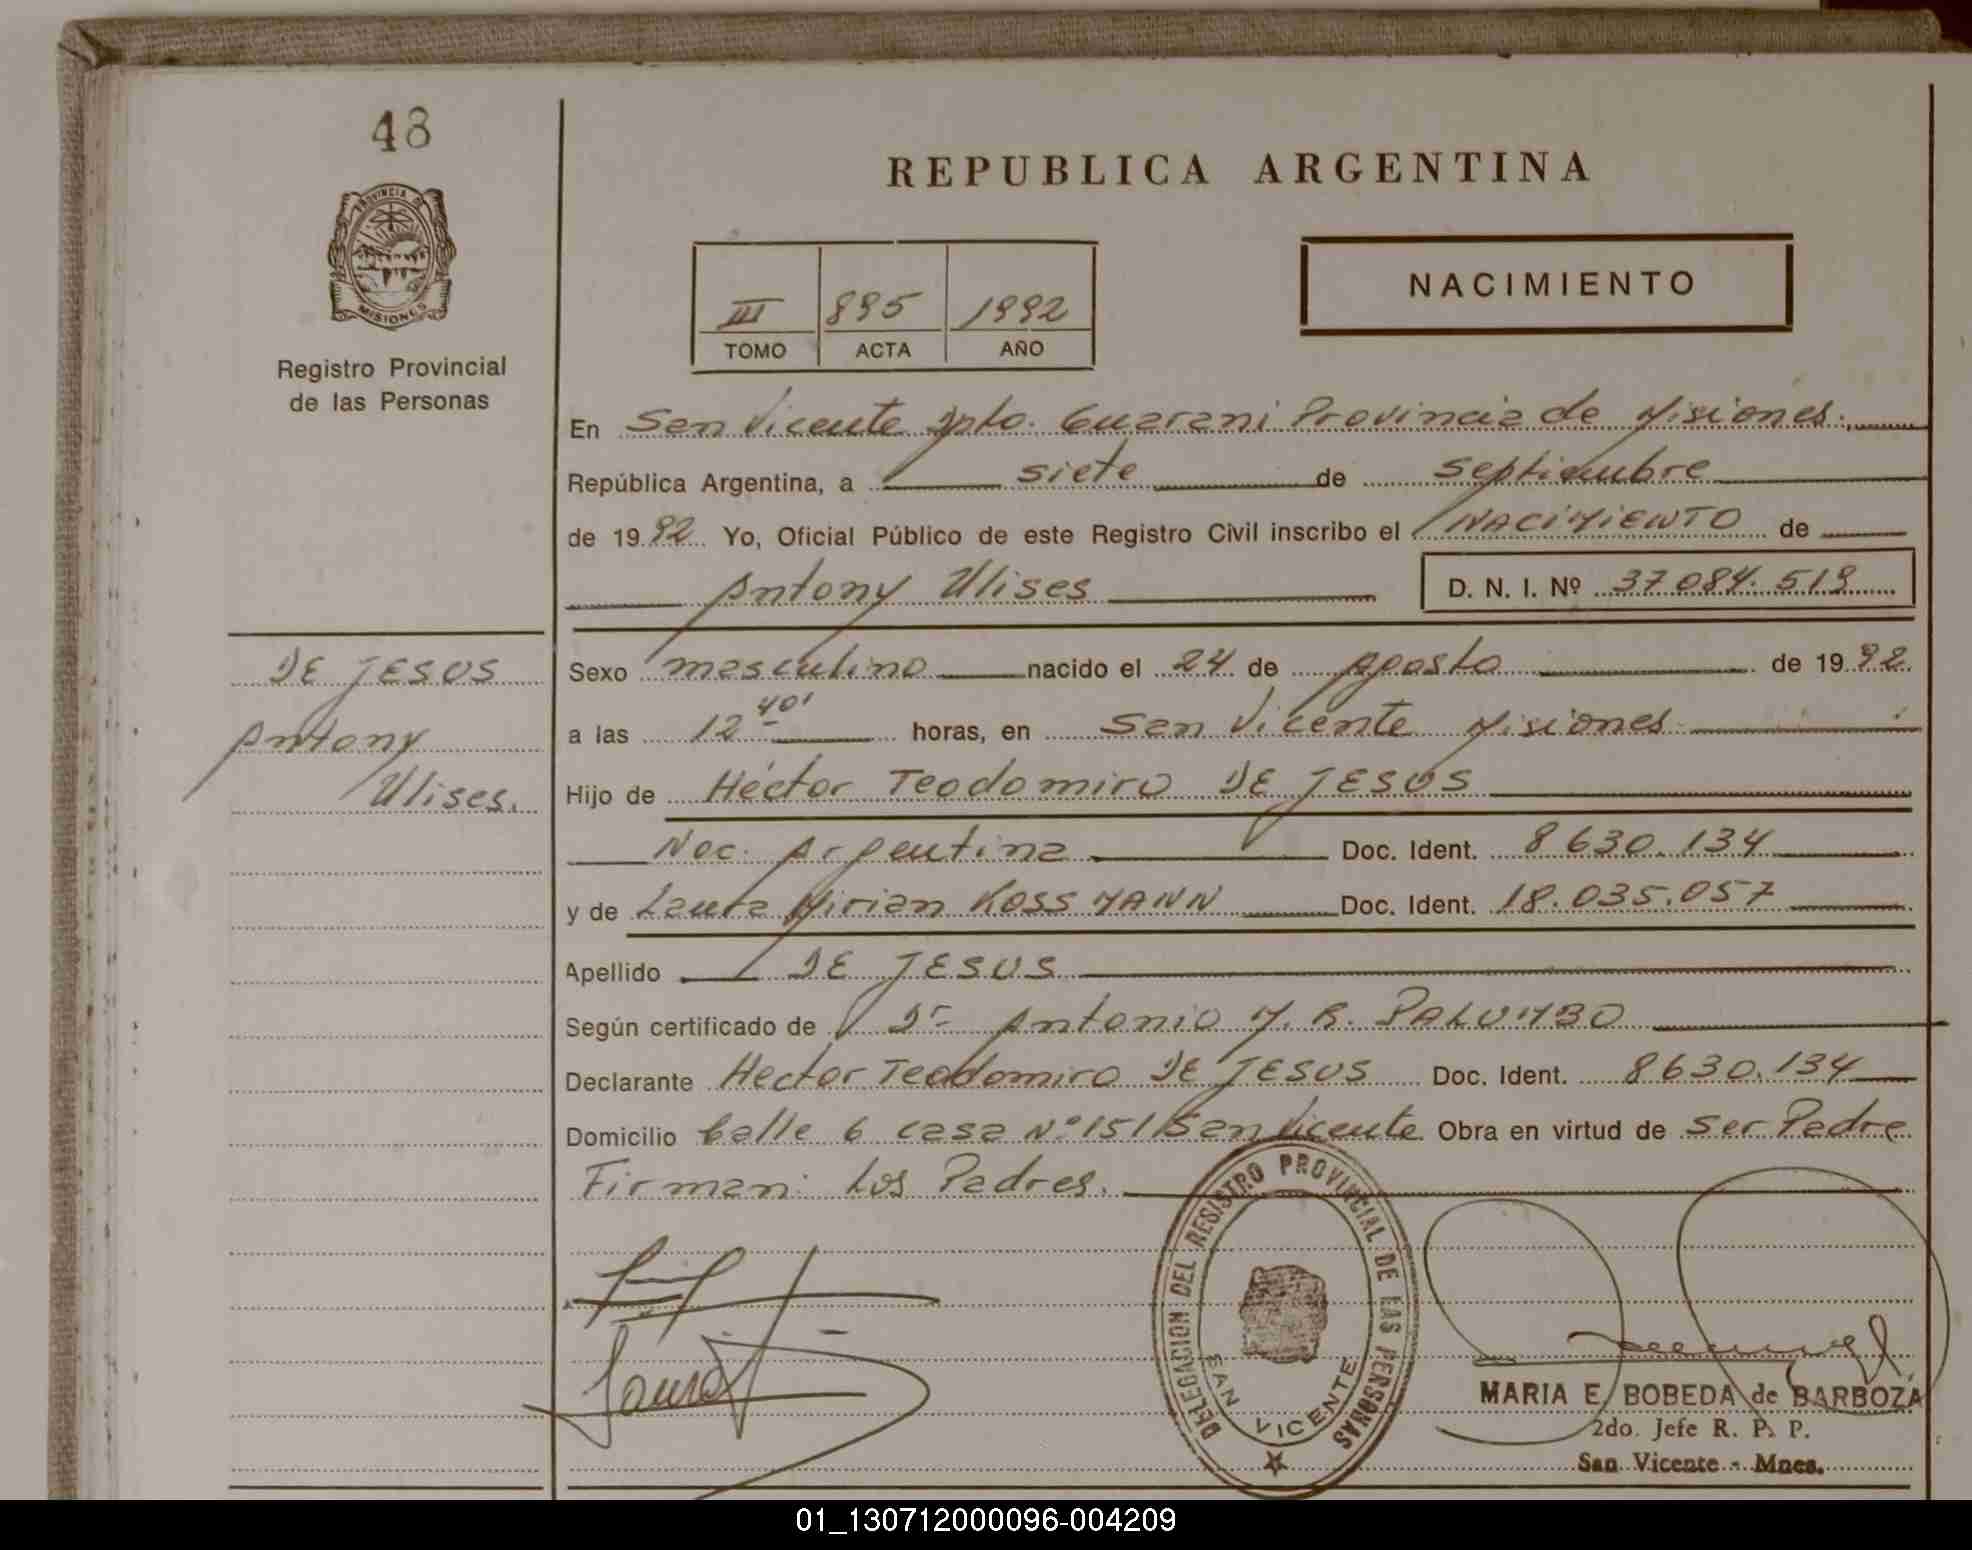 48
PROVINCIA DE
MISIONES
Registro Provincial
de las Personas
REPUBLICA ARGENTINA
NACIMIENTO
III 895 1992
TOMO ACTA AÑO
En San Vicente Dpto. Guarani Provincia de Misiones.
República Argentina, a siete de Septiembre
de 1992 Yo, Oficial Público de este Registro Civil inscribo el NACIMIENTO de
Antony Ulises D. N. I. Nº 37.084.519
DE JESUS
Antony
Ulises.
Sexo masculino nacido el 24 de Agosto de 1992
a las 12 40' horas, en San Vicente Misiones
Hijo de Héctor Teodomiro DE JESUS
Nac. Argentina Doc. Ident. 8630.134
y de Laura Mirian KOSSMANN Doc. Ident. 18.035.057
Apellido DE JESUS
Según certificado de Dr Antonio M. R. PALUMBO
Declarante Hector Teodomiro DE JESUS Doc. Ident. 8630.134
Domicilio Calle 6 casa Nº 151 San Vicente Obra en virtud de Ser Padre
Firman: Los Padres.
DELEGACION DEL REGISTRO PROVINCIAL DE LAS PERSONAS
SAN VICENTE
MARIA E. BOBEDA de BARBOZA
2do. Jefe R. P. P.
San Vicente - Mnes.
01_130712000096-004209